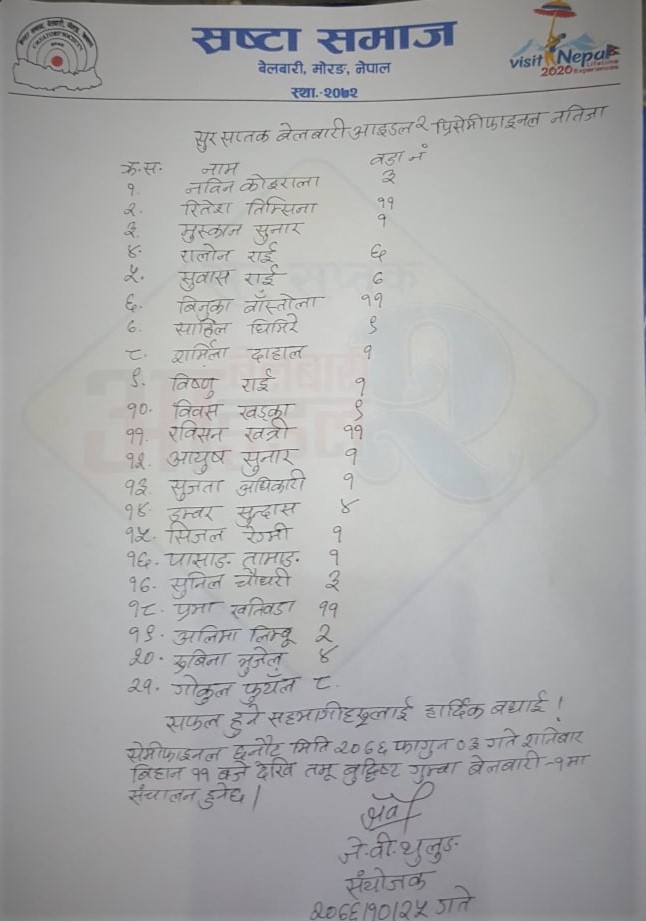 स्रष्टा समाज
बेलबारी, मोरङ, नेपाल
स्था.-२०७२
visit Nepal
2020 Lifetime Experiences
सुर सप्तक बेलबारी आइडल २ प्रिसेमीफाइनल नतिजा
क्र.स. नाम वडा नं
१. नविन कोइराला ३
२. रितेश तिम्सिना ११
३. मुस्कान सुनार १
४. रालोन राई ६
५. सुवास राई ७
६. बिनुका बाँस्तोला ११
७. साहिल घिमिरे ९
८. शर्मिला दाहाल १
९. विष्णु राई १
१०. विवस खड्का ९
११. रविसन खत्री ११
१२. आयुष सुनार १
१३. सुजता अधिकारी १
१४. डम्वर सुन्दास ४
१५. सिजल रेग्मी १
१६. पासाङ तामाङ १
१७. सुनिल चौधरी ३
१८. प्रमा खतिवडा ११
१९. अलिमा लिम्बू २
२०. रुबिना भुजेल ४
२१. गोकुल फुयाँल ८.
सफल हुने सहभागीहरूलाई हार्दिक बधाई !
सेमीफाइनल छनौट मिति २०७६ फागुन ०३ गते शनिबार
बिहान ११ बजे देखि तमू बुद्धिष्ट गुम्बा बेलबारी-१ मा
संचालन हुनेछ |
जे.वी.थुलुङ
संयोजक
२०७६/१०/२५ गते